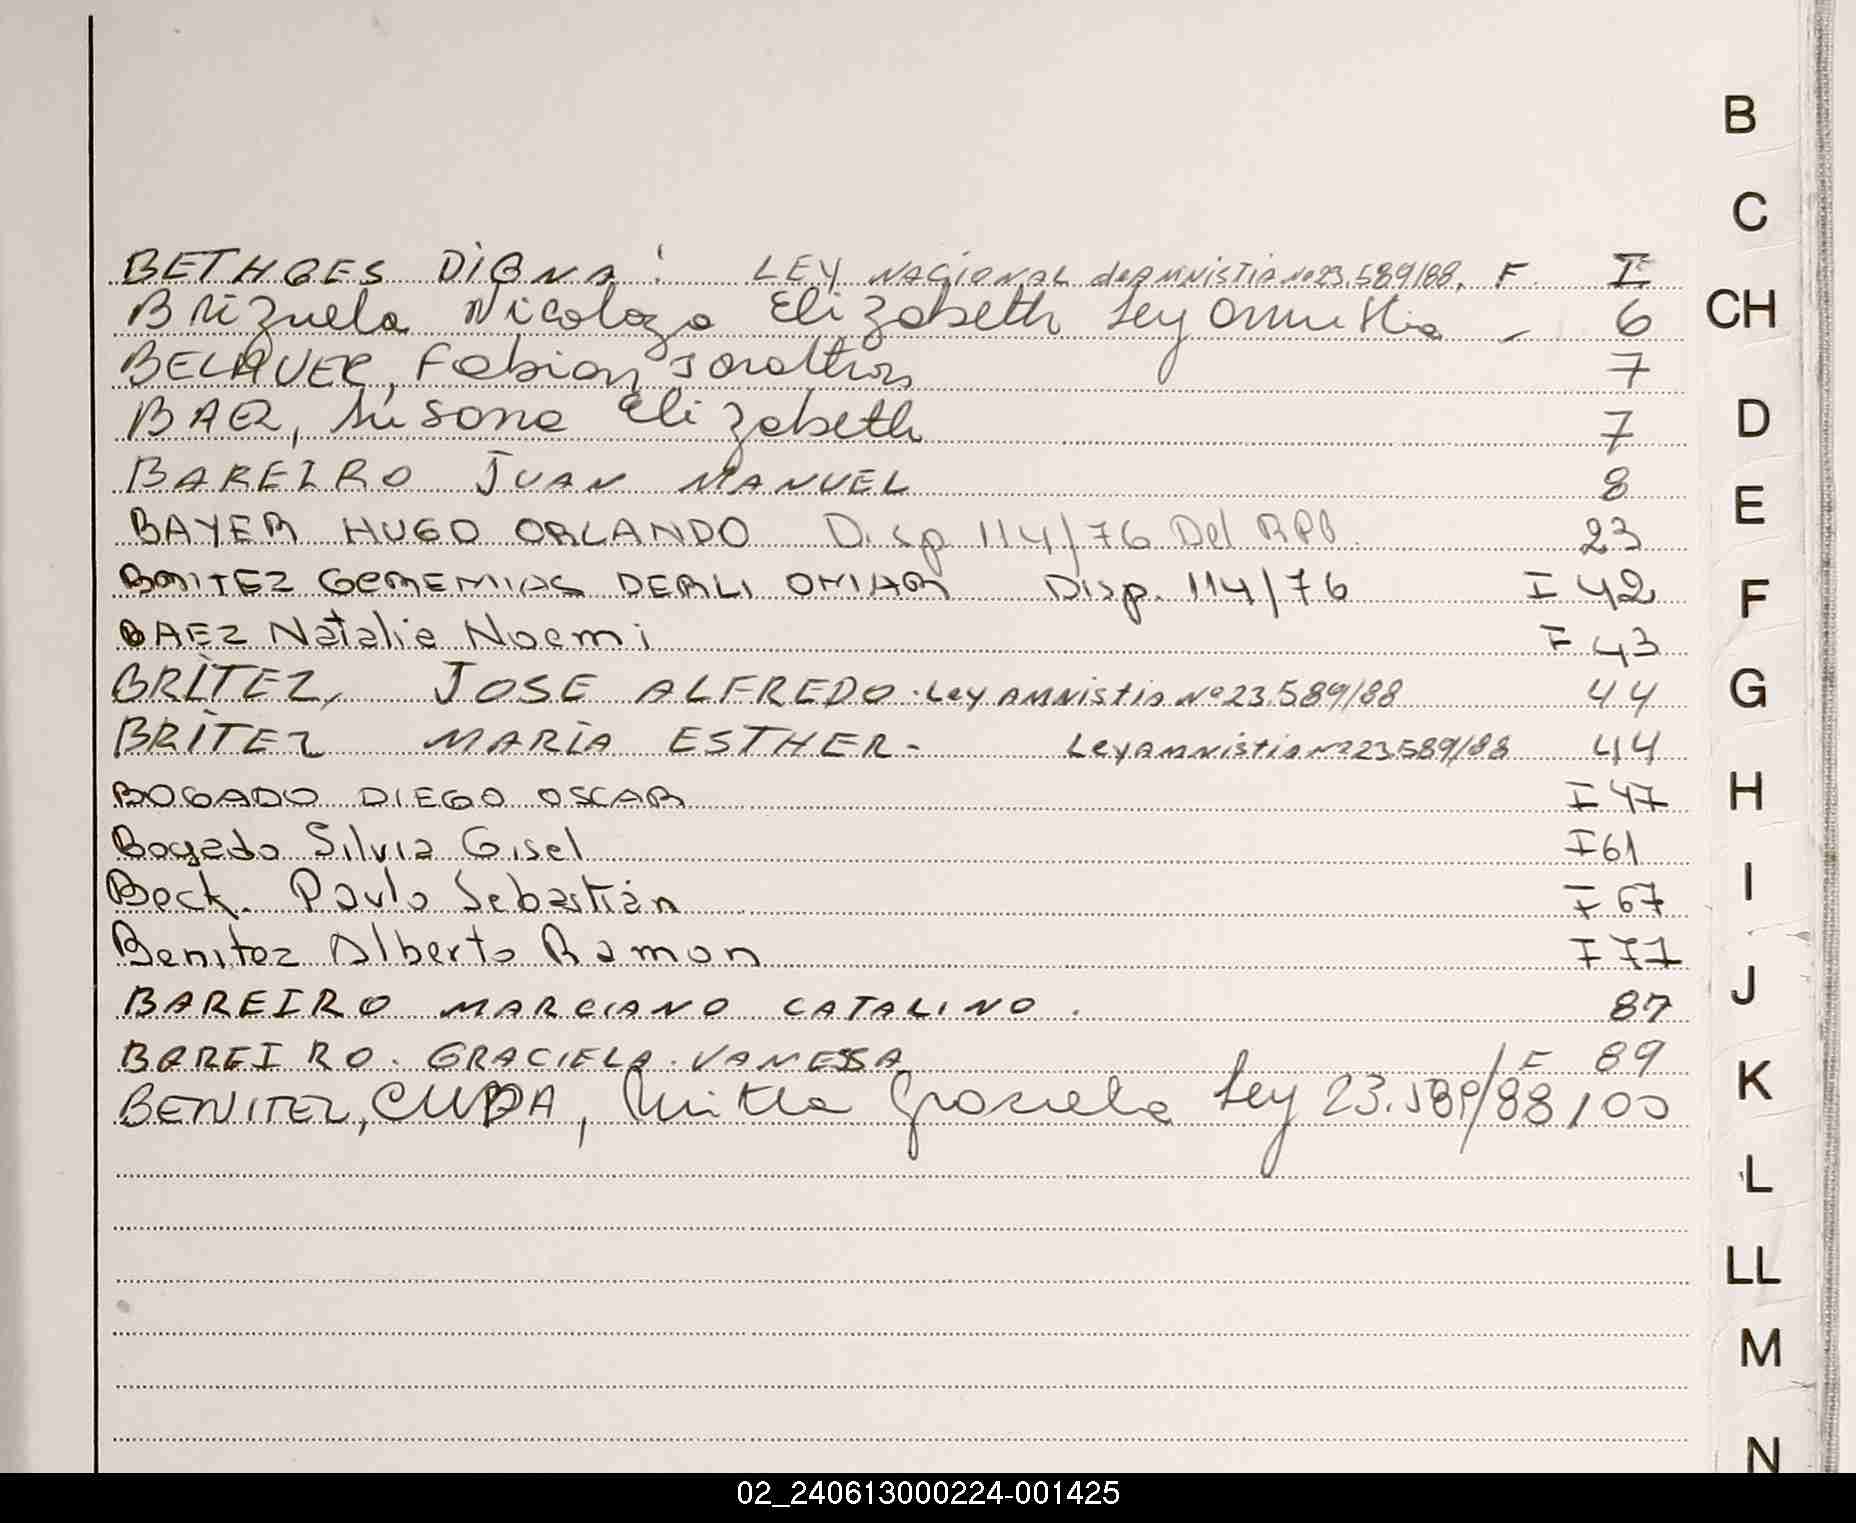 BETHGES DIGNA: LEY NACIONAL de AMNISTIA Nº 23.589/88. F I
Brizuela Nicolaza Elizabeth Ley Amnistia - 6
BELAUER, Fabian Jonathan 7
BAEZ, Susana Elizabeth 7
BAREIRO JUAN MANUEL 8
BAYER HUGO ORLANDO Disp 114/76 Del 23
BENITEZ GEREMIAS DERLI OMAR Disp. 114/76 I 42
BAEZ Natalia Noemi F 43
BRÍTEZ, JOSE ALFREDO. Ley AMNistia Nº 23.589/88 44
BRÍTEZ MARÍA ESTHER- Ley AMNistia Nº 23589/88 44
BOGADO DIEGO OSCAR I 47
Bogado Silvia Gisel I 61
Beck. Pavlo Sebastián F 67
Benitez Alberto Ramon I 77
BAREIRO MARCIANO CATALINO. 87
BAREIRO. GRACIELA. VANESSA F 89
BENITEZ, Graciela Ley 23.589/88 100
B
C
CH
D
E
F
G
H
I
J
K
L
LL
M
N
02_240613000224-001425